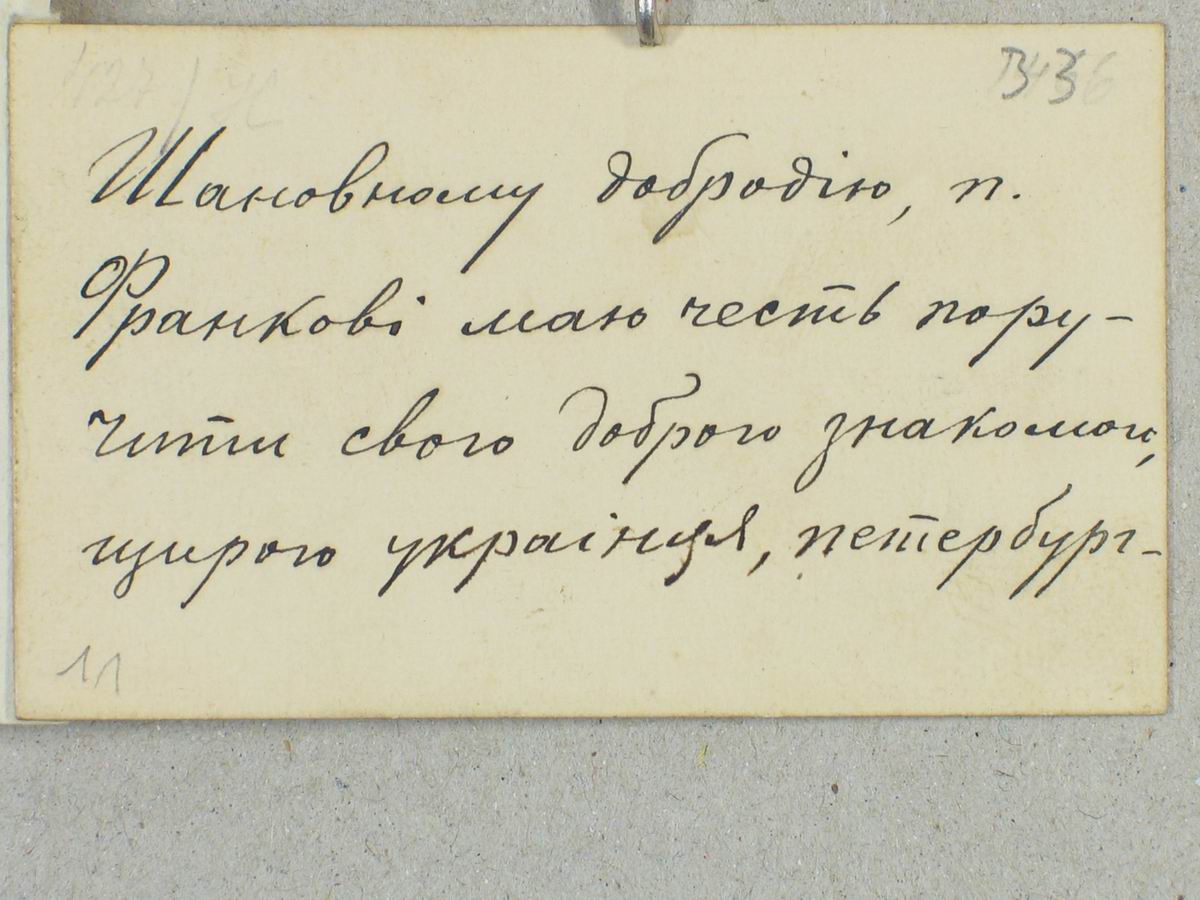 Шановному добродію, п.
Франкові маю честь пору-
чити свого доброго знакомого,
щирого українця, петербург-
11